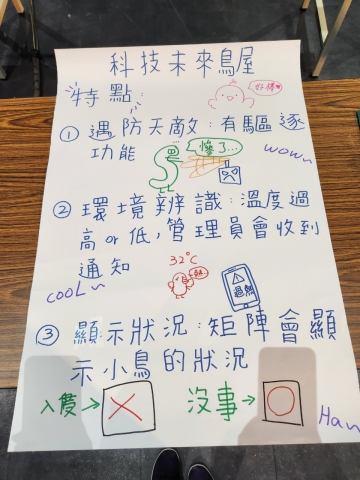 科技未來鳥屋
特點:
好棒
① 遇防天敵:有驅逐
功能
慘了...
wow~
② 環境辨識:溫度過
高or低,管理員會收到
通知
cooL~
32°C
過熱
③ 顯示狀況:矩陣會顯
示小鳥的狀況
入隻→
沒事→
Han